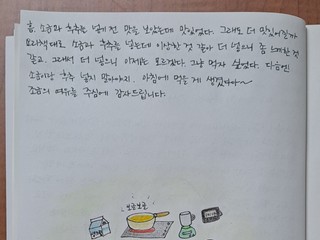 흠, 소금과 후추를 넣기 전 맛을 보았는데 맛있었다. 그래도 더 맛있어질까
요리책대로 소금과 후추를 넣는데 이상한 것 같아 더 넣으니 좀 느끼한 것
같고. 그래서 더 넣으니 이제는 모르겠다. 그냥 먹자 싶었다. 다음엔
소금이랑 후추 넣지 말아야지. 아침에 먹을 게 생겼다아~
조금의 여유를 주심에 감사드립니다.
보글보글